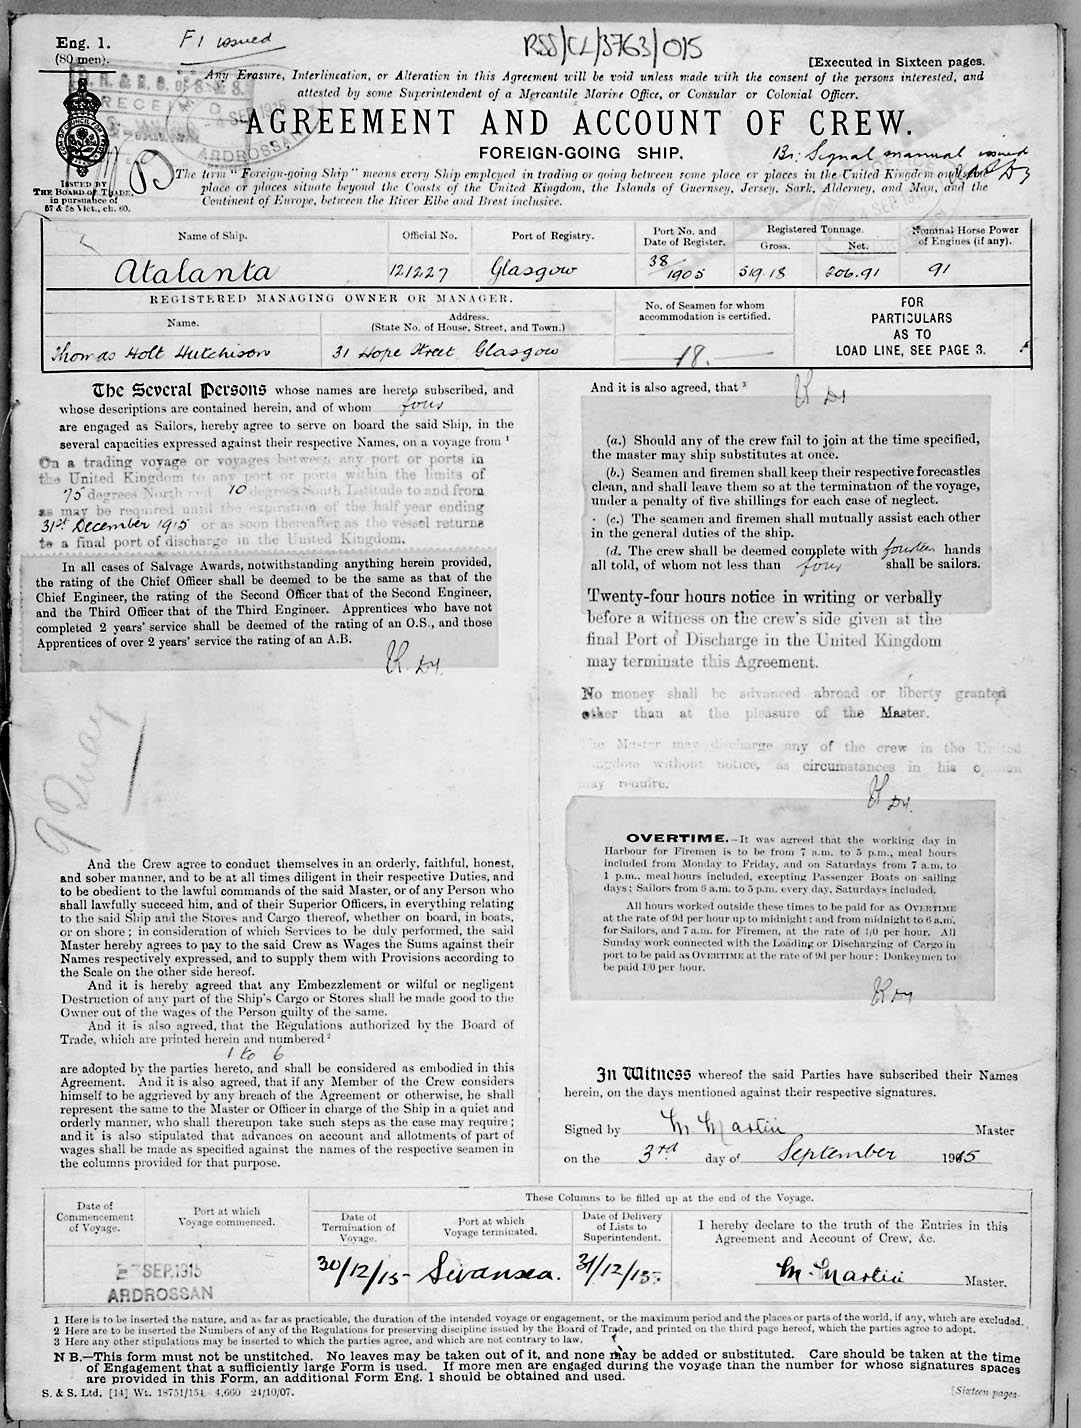 Eng. 1.
(80 men).
F1 issued
RSS/CL/3763/015
[Executed in Sixteen pages.
Any Erasure, Interlineation, or Alteration in this Agreement will be void unless made with the consent of the persons interested, and
attested by some Superintendent of a Mercantile Marine Office, or Consular or Colonial Officer.
RECEIVED
ARDROSSAN
AGREEMENT AND ACCOUNT OF CREW.
FOREIGN-GOING SHIP.
Br: Signal manual issued
ISSUED BY
THE BOARD OF TRADE,
in pursuance of
57 & 58 Vict., ch. 60.
The term "Foreign-going Ship" means every Ship employed in trading or going between some place or places in the United Kingdom and some
place or places situate beyond the Coasts of the United Kingdom, the Islands of Guernsey, Jersey, Sark, Alderney, and Man, and the
Continent of Europe, between the River Elbe and Brest inclusive.
Name of Ship. Official No. Port of Registry. Port No. and Date of Register. Registered Tonnage. Gross. Net. Nominal Horse Power of Engines (if any).
Atalanta 121227 Glasgow 38/1905 519.18 206.91 91
REGISTERED MANAGING OWNER OR MANAGER.
Name. Address. (State No. of House, Street, and Town.)
No. of Seamen for whom accommodation is certified.
Thomas Holt Hutchison 31 Hope Street Glasgow 18.
FOR
PARTICULARS
AS TO
LOAD LINE, SEE PAGE 3.
The Several Persons whose names are hereto subscribed, and
whose descriptions are contained herein, and of whom four
are engaged as Sailors, hereby agree to serve on board the said Ship, in the
several capacities expressed against their respective Names, on a voyage from 1
On a trading voyage or voyages between any port or ports in
the United Kingdom to any port or ports within the limits of
75 degrees North and 10 degrees South Latitude to and from
as may be required until the expiration of the half year ending
31st December 1915 or as soon thereafter as the vessel returns
to a final port of discharge in the United Kingdom.
In all cases of Salvage Awards, notwithstanding anything herein provided,
the rating of the Chief Officer shall be deemed to be the same as that of the
Chief Engineer, the rating of the Second Officer that of the Second Engineer,
and the Third Officer that of the Third Engineer. Apprentices who have not
completed 2 years' service shall be deemed of the rating of an O.S., and those
Apprentices of over 2 years' service the rating of an A.B.
And the Crew agree to conduct themselves in an orderly, faithful, honest,
and sober manner, and to be at all times diligent in their respective Duties, and
to be obedient to the lawful commands of the said Master, or of any Person who
shall lawfully succeed him, and of their Superior Officers, in everything relating
to the said Ship and the Stores and Cargo thereof, whether on board, in boats,
or on shore; in consideration of which Services to be duly performed, the said
Master hereby agrees to pay to the said Crew as Wages the Sums against their
Names respectively expressed, and to supply them with Provisions according to
the Scale on the other side hereof.
And it is hereby agreed that any Embezzlement or wilful or negligent
Destruction of any part of the Ship's Cargo or Stores shall be made good to the
Owner out of the wages of the Person guilty of the same.
And it is also agreed, that the Regulations authorized by the Board of
Trade, which are printed herein and numbered 2
1 to 6
are adopted by the parties hereto, and shall be considered as embodied in this
Agreement. And it is also agreed, that if any Member of the Crew considers
himself to be aggrieved by any breach of the Agreement or otherwise, he shall
represent the same to the Master or Officer in charge of the Ship in a quiet and
orderly manner, who shall thereupon take such steps as the case may require;
and it is also stipulated that advances on account and allotments of part of
wages shall be made as specified against the names of the respective seamen in
the columns provided for that purpose.
And it is also agreed, that 3
(a.) Should any of the crew fail to join at the time specified,
the master may ship substitutes at once.
(b.) Seamen and firemen shall keep their respective forecastles
clean, and shall leave them so at the termination of the voyage,
under a penalty of five shillings for each case of neglect.
(c.) The seamen and firemen shall mutually assist each other
in the general duties of the ship.
(d. The crew shall be deemed complete with fourteen hands
all told, of whom not less than four shall be sailors.
Twenty-four hours notice in writing or verbally
before a witness on the crew's side given at the
final Port of Discharge in the United Kingdom
may terminate this Agreement.
No money shall be advanced abroad or liberty granted
other than at the pleasure of the Master.
The Master may discharge any of the crew in the United
Kingdom without notice, as circumstances in his opinion
may require.
OVERTIME.—It was agreed that the working day in
Harbour for Firemen is to be from 7 a.m. to 5 p.m., meal hours
included from Monday to Friday, and on Saturdays from 7 a.m. to
1 p.m., meal hours included, excepting Passenger Boats on sailing
days; Sailors from 6 a.m. to 5 p.m. every day, Saturdays included.
All hours worked outside these times to be paid for as OVERTIME
at the rate of 9d per hour up to midnight; and from midnight to 6 a.m.
for Sailors, and 7 a.m. for Firemen, at the rate of 1/0 per hour. All
Sunday work connected with the Loading or Discharging of Cargo in
port to be paid as OVERTIME at the rate of 9d per hour; Donkeymen to
be paid 1/0 per hour.
In Witness whereof the said Parties have subscribed their Names
herein, on the days mentioned against their respective signatures.
Signed by M. Martin Master
on the 3rd day of September 1915
These Columns to be filled up at the end of the Voyage.
Date of Commencement of Voyage. Port at which Voyage commenced. Date of Termination of Voyage. Port at which Voyage terminated. Date of Delivery of Lists to Superintendent.
I hereby declare to the truth of the Entries in this
Agreement and Account of Crew, &c.
SEP. 1915
ARDROSSAN
30/12/15 Swansea. 31/12/15. M. Martin Master.
1 Here is to be inserted the nature, and as far as practicable, the duration of the intended voyage or engagement, or the maximum period and the places or parts of the world, if any, which are excluded.
2 Here are to be inserted the Numbers of any of the Regulations for preserving discipline issued by the Board of Trade, and printed on the third page hereof, which the parties agree to adopt.
3 Here any other stipulations may be inserted to which the parties agree, and which are not contrary to law.
N B.—This form must not be unstitched. No leaves may be taken out of it, and none may be added or substituted. Care should be taken at the time
of Engagement that a sufficiently large Form is used. If more men are engaged during the voyage than the number for whose signatures spaces
are provided in this Form, an additional Form Eng. 1 should be obtained and used.
S. & S. Ltd. [14] Wt. 18751/154 4,660 24/10/07.
[Sixteen pages